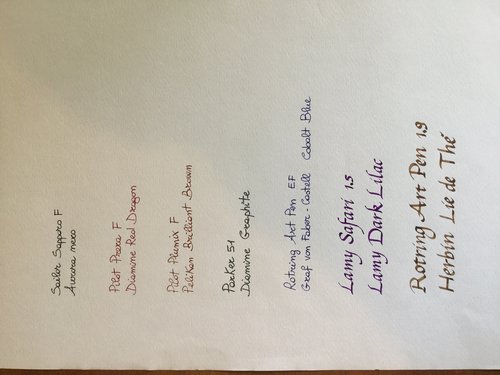 Sailor Sapporo F
Aurora nero
Pilot Prera F
Diamine Red Dragon
Pilot Plumix F
Pelikan Brilliant Brown
Parker 51
Diamine Graphite
Rotring Art Pen EF
Graf von Faber-Castell Cobalt Blue
Lamy Safari 1.5
Lamy Dark Lilac
Rotring Art Pen 1.9
Herbin Lie de Thé